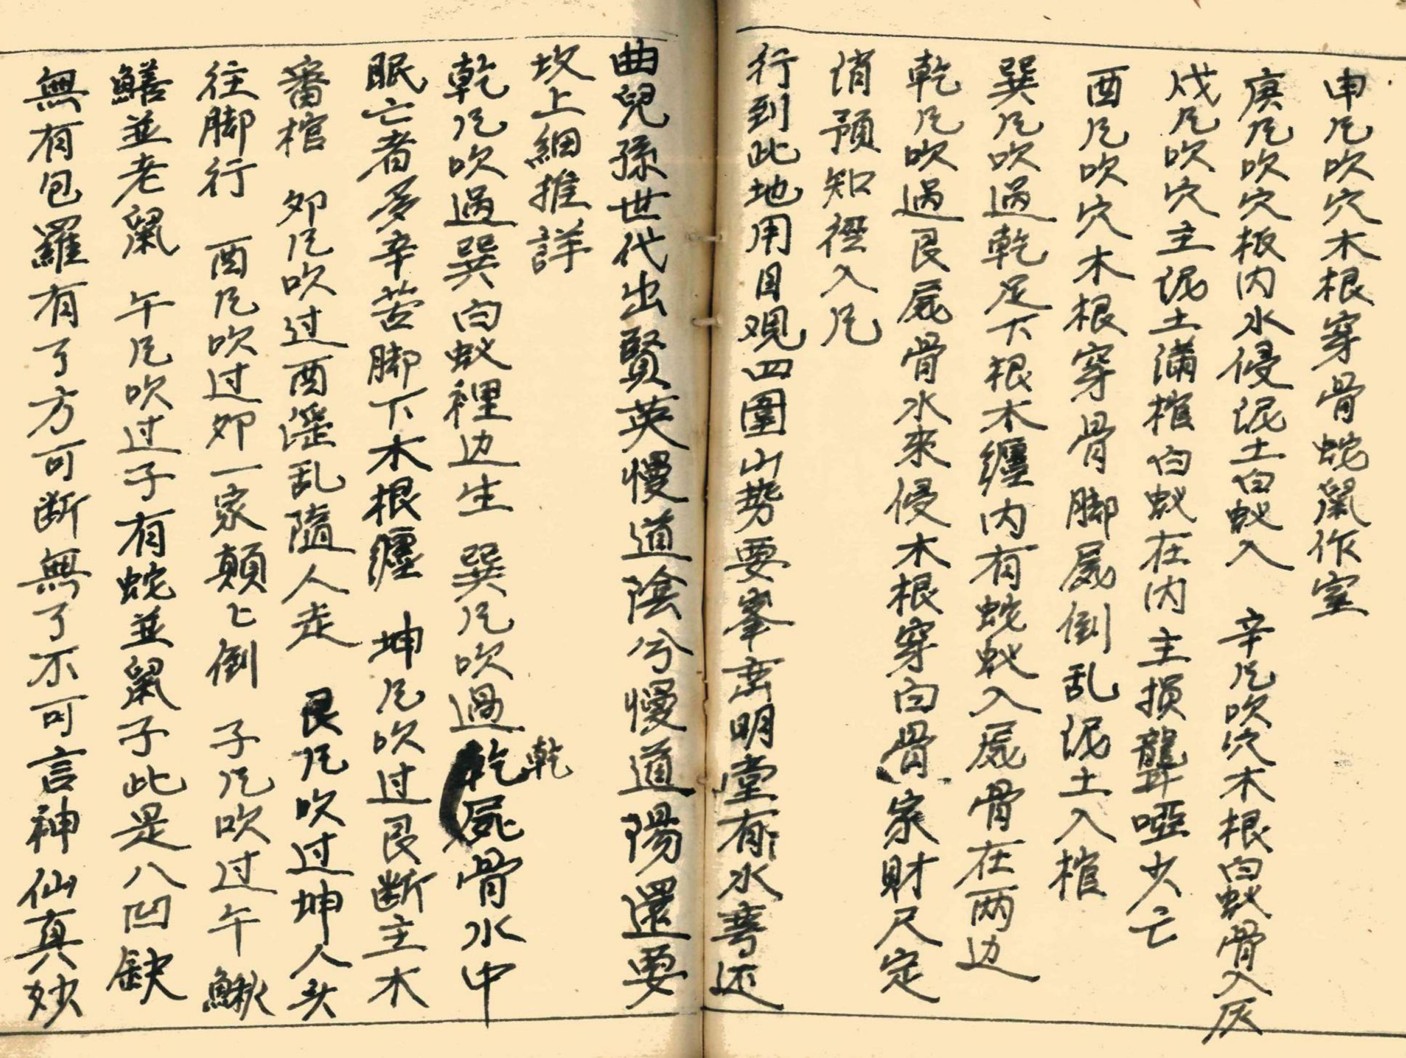 申凢吹穴木根穿骨蛇鼠作室
庚凢吹穴板内水侵泥土白蚁入 辛凢吹穴木根白蚁骨入灰
戍凢吹穴主泥土满棺白蚁在内主损聾哑少亡
酉凢吹穴木根穿骨脚屍倒乱泥土入棺
巽凢吹過乾足下根木纏内有蛇蚁入屍骨在两边
乾凢吹過艮屍骨水來侵木根穿白骨家財尺定
消預知裡入凢
行到此地用目观四圍山势要峯峦明堂有水弯还
曲兒孫世代出賢英慢道陰兮慢道陽還要
坎上細推詳
乾凢吹過巽白蚁裡边生 巽凢吹過乾屍骨水中
乾
眠亡者多辛苦脚下木根纏 坤凢吹过艮断主木
審棺 夘凢吹过酉淫乱隨人走 艮凢吹过坤人头
往脚行 酉凢吹过夘一家顛匕倒 子凢吹过午鰍
鱔並老鼠 午凢吹过子有蛇並鼠子此是八凹缺
無有包羅有了方可断無了不可言神仙真妙